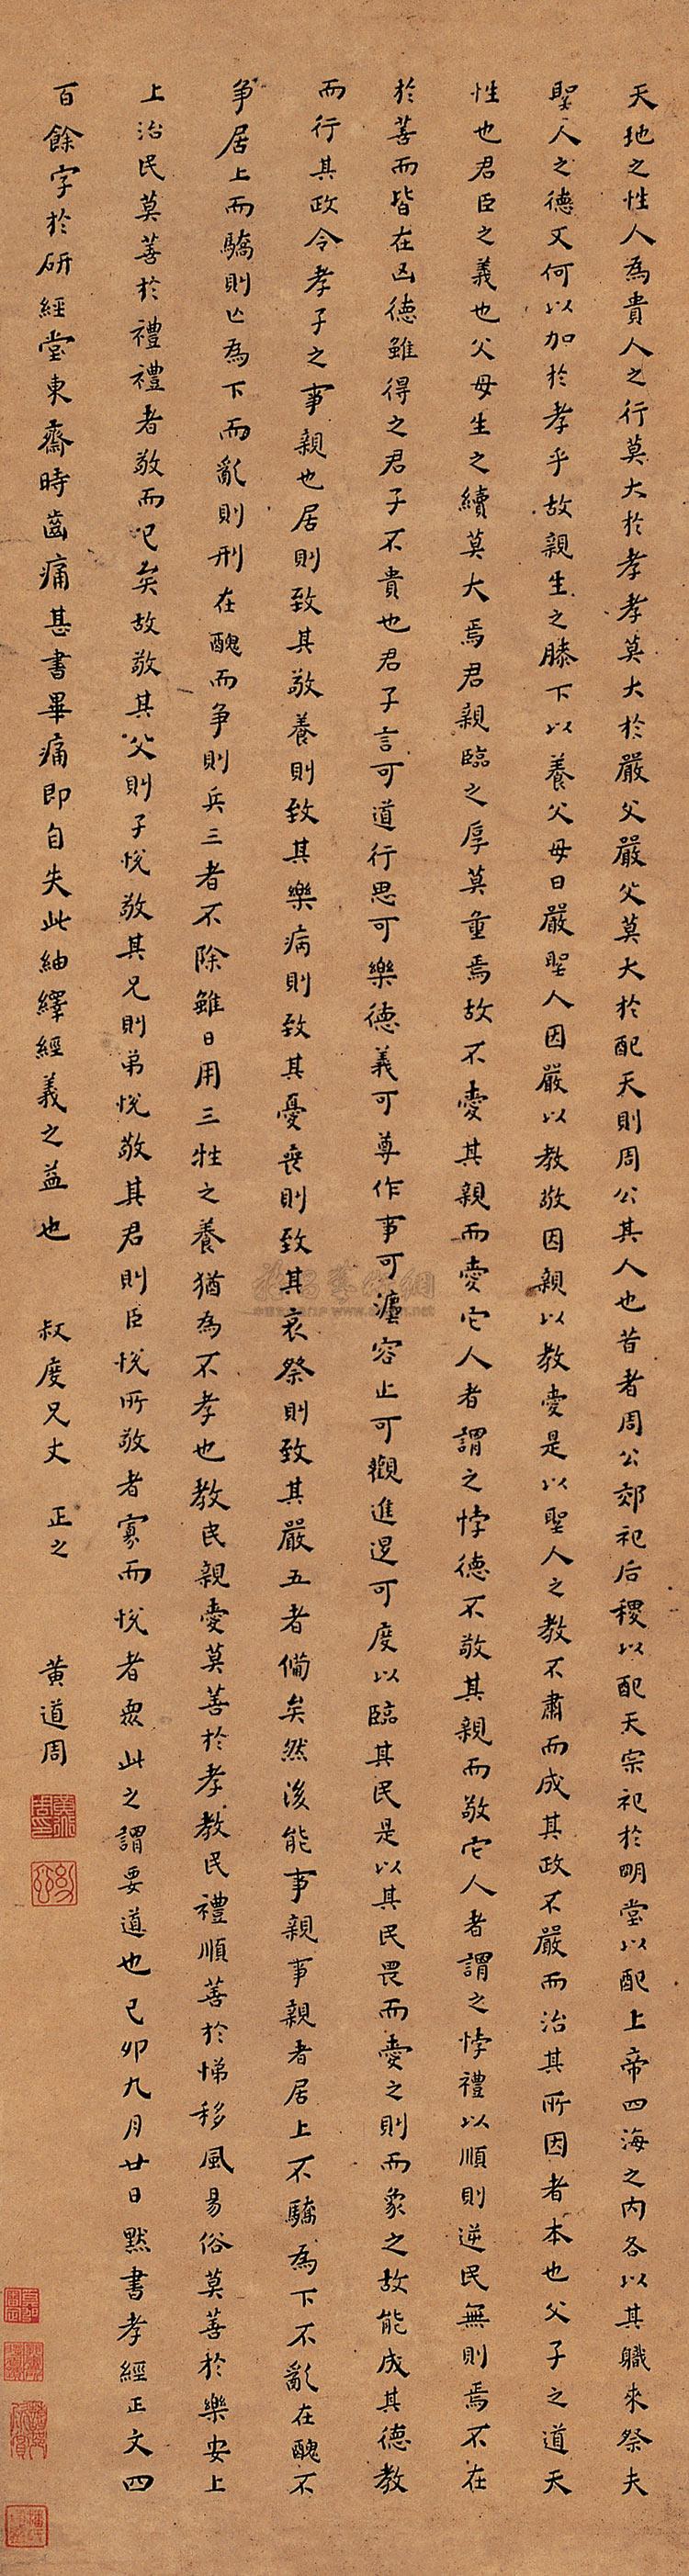 天地之性人為貴人之行莫大於孝孝莫大於嚴父嚴父莫大於配天則周公其人也昔者周公郊祀后稷以配天宗祀於明堂以配上帝四海之內各以其職來祭夫
聖人之德又何以加於孝乎故親生之膝下以養父母日嚴聖人因嚴以教敬因親以教愛是以聖人之教不肅而成其政不嚴而治其所因者本也父子之道天
性也君臣之義也父母生之續莫大焉君親臨之厚莫重焉故不愛其親而愛它人者謂之悖德不敬其親而敬它人者謂之悖禮以順則逆民無則焉不在
於善而皆在凶德雖得之君子不貴也君子言可道行思可樂德義可尊作事可灋容止可觀進退可度以臨其民是以其民畏而愛之則而象之故能成其德教
而行其政令孝子之事親也居則致其敬養則致其樂病則致其憂喪則致其哀祭則致其嚴五者備矣然後能事親事親者居上不驕為下不亂在醜不
爭居上而驕則亡為下而亂則刑在醜而爭則兵三者不除雖日用三牲之養猶為不孝也教民親愛莫善於孝教民禮順善於悌移風易俗莫善於樂安上
上治民莫善於禮禮者敬而已矣故敬其父則子悅敬其兄則弟悅敬其君則臣悅所敬者寡而悅者眾此之謂要道也己卯九月廿日默書孝經正文四
百餘字於研經堂東齋時齒痛甚書畢痛即自失此紬繹經義之益也 叔度兄丈 正之 黃道周